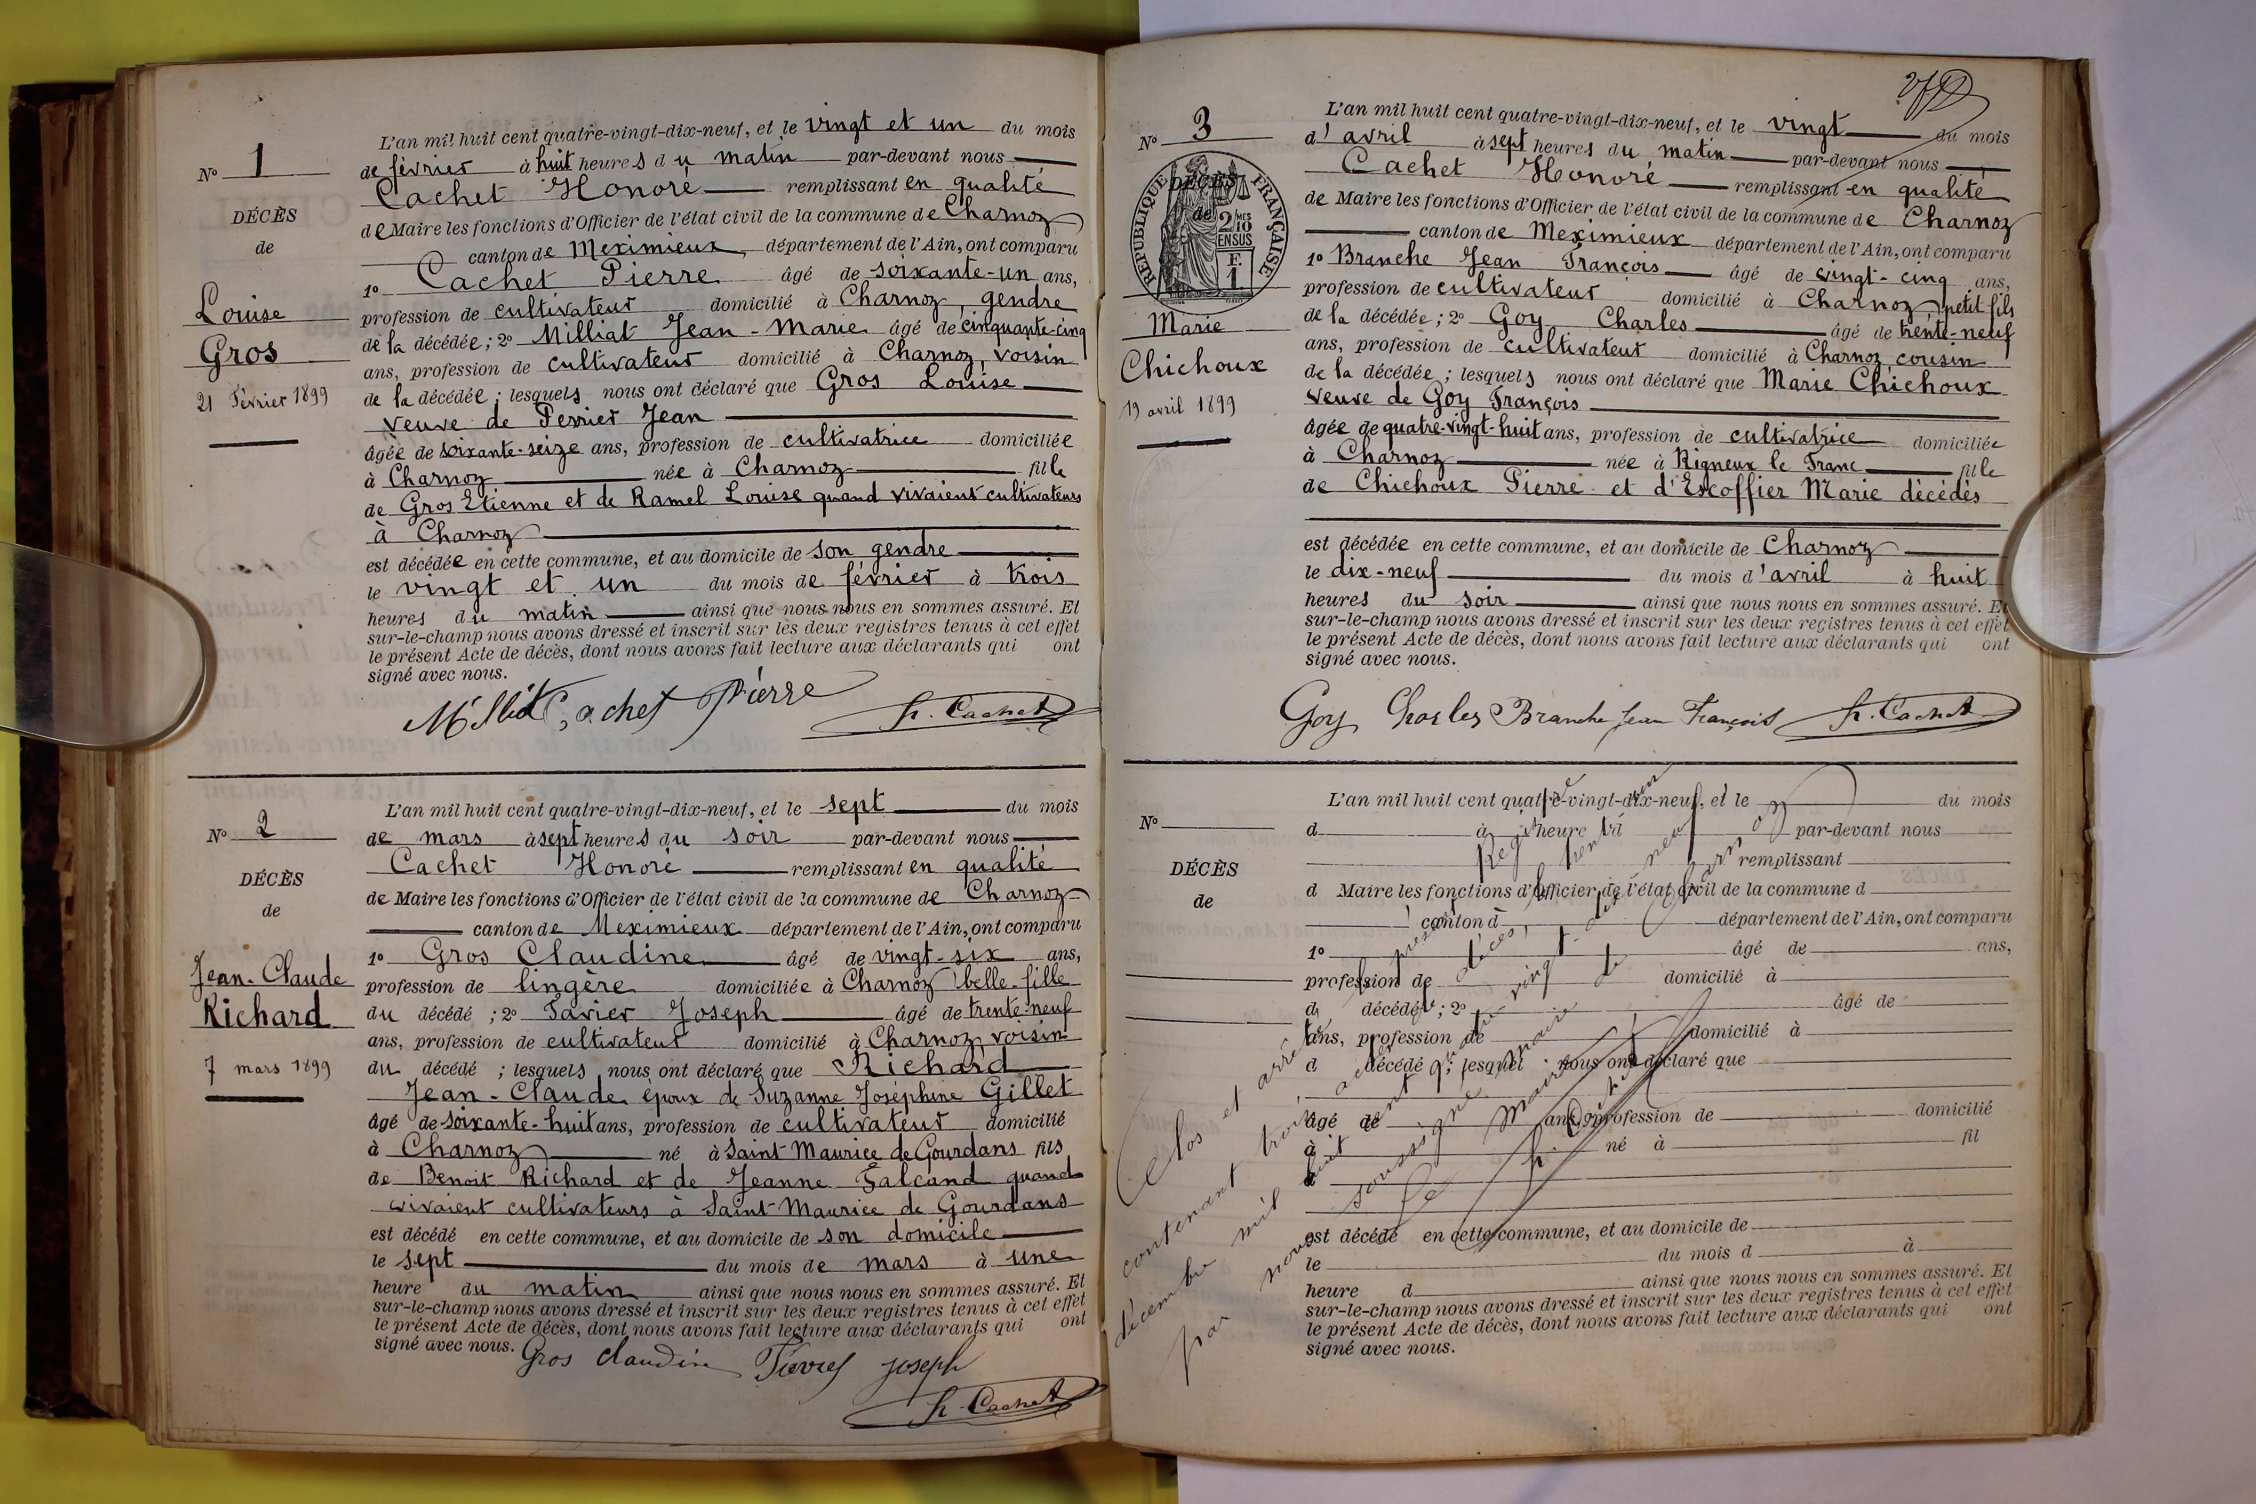 N° 1
DÉCÈS
de
Louise
Gros
21 Février 1899
L'an mil huit cent quatre-vingt-dix-neuf, et le vingt et un du mois
de février à huit heures du matin par-devant nous
Cachet Honoré remplissant en qualité
de Maire les fonctions d'Officier de l'état civil de la commune de Charnoz
canton de Meximieux département de l'Ain, ont comparu
1° Cachet Pierre âgé de soixante-un ans,
profession de cultivateur domicilié à Charnoz, gendre
de la décédée; 2° Milliat Jean-Marie âgé de cinquante-cinq
ans, profession de cultivateur domicilié à Charnoz, voisin
de la décédée; lesquels nous ont déclaré que Gros Louise
veuve de Perrier Jean
âgée de soixante-seize ans, profession de cultivatrice domiciliée
à Charnoz née à Charnoz fille
de Gros Etienne et de Ramel Louise quand vivaient cultivateurs
à Charnoz
est décédée en cette commune, et au domicile de son gendre
le vingt et un du mois de février à trois
heures du matin ainsi que nous nous en sommes assuré. Et
sur-le-champ nous avons dressé et inscrit sur les deux registres tenus à cet effet
le présent Acte de décès, dont nous avons fait lecture aux déclarants qui ont
signé avec nous.
Milliat Cachet Pierre h. Cachet
N° 2
DÉCÈS
de
Jean-Claude
Richard
7 mars 1899
L'an mil huit cent quatre-vingt-dix-neuf, et le sept du mois
de mars à sept heures du soir par-devant nous
Cachet Honoré remplissant en qualité
de Maire les fonctions d'Officier de l'état civil de la commune de Charnoz
canton de Meximieux département de l'Ain, ont comparu
1° Gros Claudine âgé de vingt-six ans,
profession de lingère domiciliée à Charnoz belle-fille
du décédé; 2° Favier Joseph âgé de trente-neuf
ans, profession de cultivateur domicilié à Charnoz, voisin
du décédé; lesquels nous ont déclaré que Richard
Jean-Claude époux de Suzanne Joséphine Gillet
âgé de soixante-huit ans, profession de cultivateur domicilié
à Charnoz né à Saint Maurice de Gourdans fils
de Benoit Richard et de Jeanne Falcand quand
vivaient cultivateurs à Saint Maurice de Gourdans
est décédé en cette commune, et au domicile de son domicile
le sept du mois de mars à une
heure du matin ainsi que nous nous en sommes assuré. Et
sur-le-champ nous avons dressé et inscrit sur les deux registres tenus à cet effet
le présent Acte de décès, dont nous avons fait lecture aux déclarants qui ont
signé avec nous. Gros Claudine Joseph
h. Cachet
N° 3
RÉPUBLIQUE FRANÇAISE
2/10 MES
EN SUS
F. 1
DÉCÈS
de
Marie
Chichoux
19 avril 1899
L'an mil huit cent quatre-vingt-dix-neuf, et le vingt du mois
d'avril à sept heures du matin par-devant nous
Cachet Honoré remplissant en qualité
de Maire les fonctions d'Officier de l'état civil de la commune de Charnoz
canton de Meximieux département de l'Ain, ont comparu
1° Branche Jean François âgé de vingt-cinq ans,
profession de cultivateur domicilié à Charnoz petit fils
de la décédée; 2° Goy Charles âgé de trente-neuf
ans, profession de cultivateur domicilié à Charnoz cousin
de la décédée; lesquels nous ont déclaré que Marie Chichoux
veuve de Goy François
âgée de quatre-vingt-huit ans, profession de cultivatrice domiciliée
à Charnoz née à Rigneux le Franc fille
de Chichoux Pierre et d'Escoffier Marie décédés
est décédée en cette commune, et au domicile de Charnoz
le dix-neuf du mois d'avril à huit
heures du soir ainsi que nous nous en sommes assuré. Et
sur-le-champ nous avons dressé et inscrit sur les deux registres tenus à cet effet
le présent Acte de décès, dont nous avons fait lecture aux déclarants qui ont
signé avec nous.
Goy Charles Branche Jean François h. Cachet
N°
DÉCÈS
de
L'an mil huit cent quatre-vingt-dix-neuf, et le du mois
d à heure d par-devant nous
remplissant
d Maire les fonctions d'Officier de l'état civil de la commune d
canton d département de l'Ain, ont comparu
1° âgé de ans,
profession de domicilié à
d décédé; 2° âgé de
ans, profession de domicilié à
d décédé; lesquel nous ont déclaré que
âgé de ans, profession de domicilié
à né à fil
d
est décédé en cette commune, et au domicile de
le du mois d à
heure d ainsi que nous nous en sommes assuré. Et
sur-le-champ nous avons dressé et inscrit sur les deux registres tenus à cet effet
le présent Acte de décès, dont nous avons fait lecture aux déclarants qui ont
signé avec nous.
Clos et arrêté le présent Registre
contenant trois actes de décès, le trente un
décembre mil huit cent quatre vingt-dix neuf
par nous soussigné maire de Charnoz
Le Maire
h. Cachet